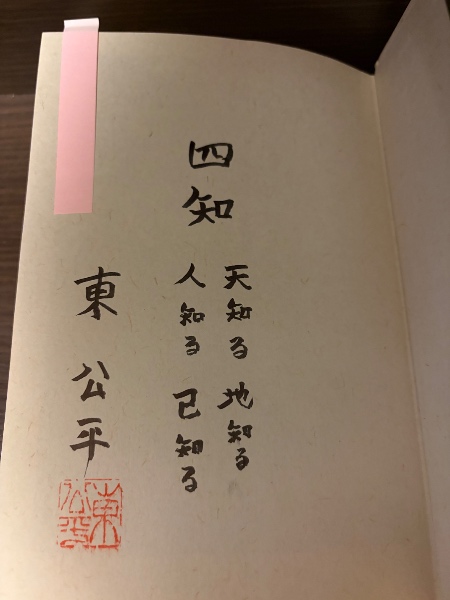 四知
天知る 地知る
人知る 己知る
東 公平
東公平